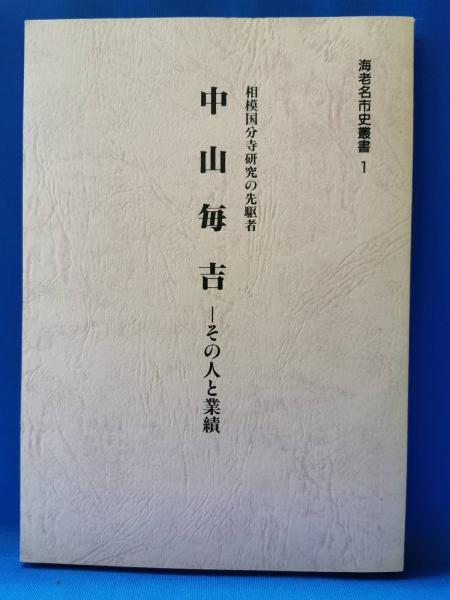 海老名市史叢書 1
相模国分寺研究の先駆者
中山毎吉
―その人と業績